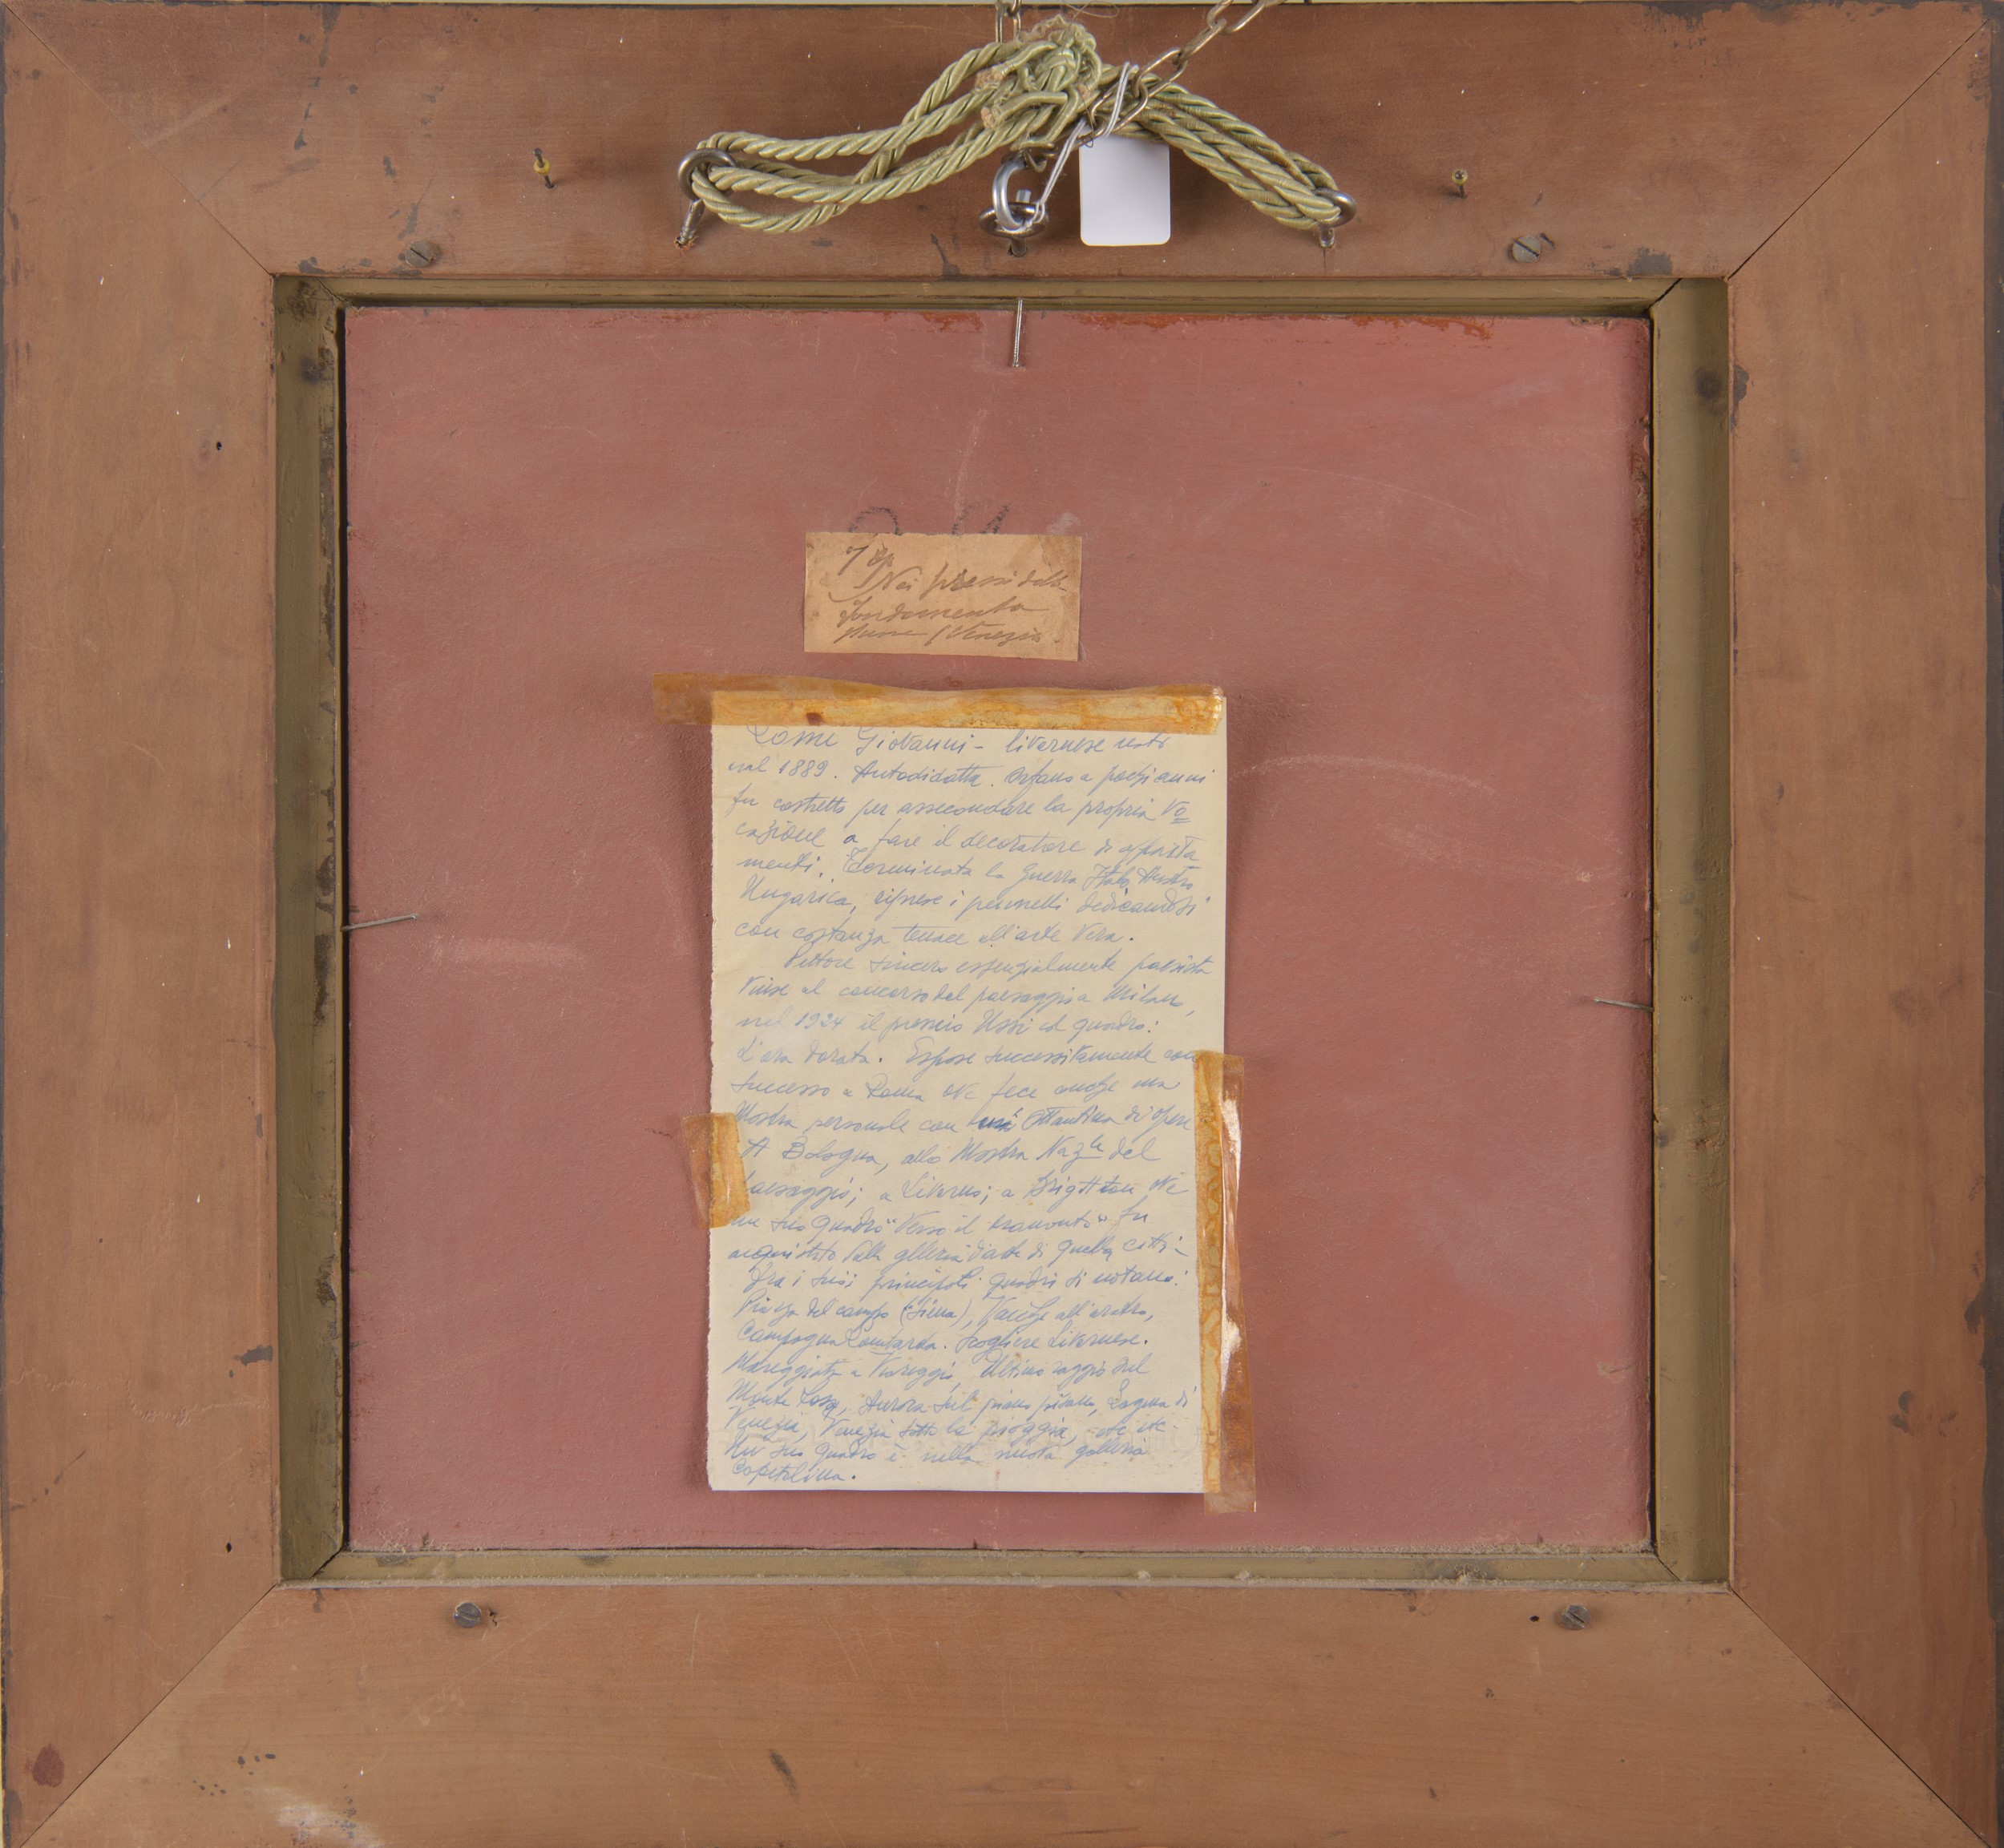 Nei pressi delle
fondamenta
nuove (Venezia
Lomi Giovanni - livornese nato
nel 1889. Autodidatta. Orfano a pochi anni
fu costretto per assecondare la propria vo
cazione a fare il decoratore di apparta
menti. Terminata la Guerra Italo Austro
Ungarica, riprese i pennelli dedicandosi
con costanza tenace all'arte vera.
Pittore sincero essenzialmente paesista
Vinse al concorso del paesaggio a Milano,
nel 1924 il premio Ussi col quadro:
L'ora dorata. Espose successivamente con
successo a Roma ove fece anche una
Mostra personale con un'ottantina di opere
A Bologna, alla Mostra Naz.le del
paesaggio; a Livorno; a Brighton ove
un suo quadro "Verso il tramonto" fu
acquistato dalla galleria d'arte di quella città -
Fra i suoi principali quadri si notano:
Piazza del campo (Siena), Vacche all'aratro,
Campagna Lombarda. Scogliere Livornese.
Mareggiata a Viareggio, Ultimo raggio sul
Monte Rosa, Aurora sul piano pisano, Laguna di
Venezia, Venezia sotto la pioggia, ecc etc -
Un suo quadro è nella galleria
Capitolina.